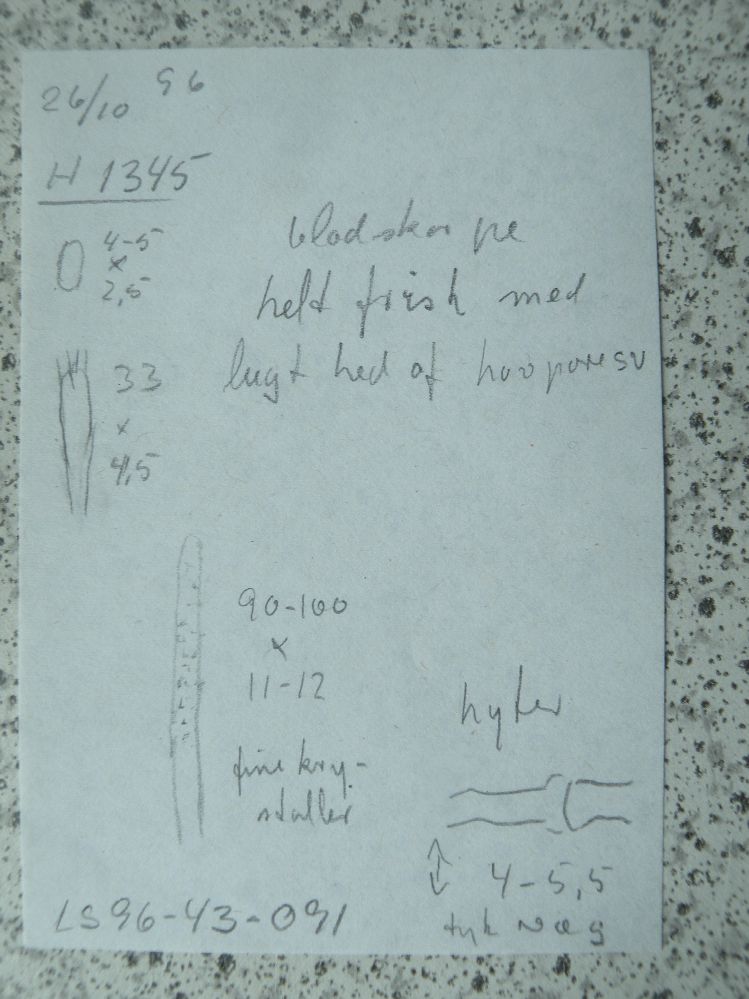 26/10 96
H 1345
4-5
x
2,5
blodskorpe
helt frisk med
lugt hed af
33
x
4,5
90-100
x
11-12
fine kry-
staller
hyfer
4-5,5
tyk væg
LS96-43-091